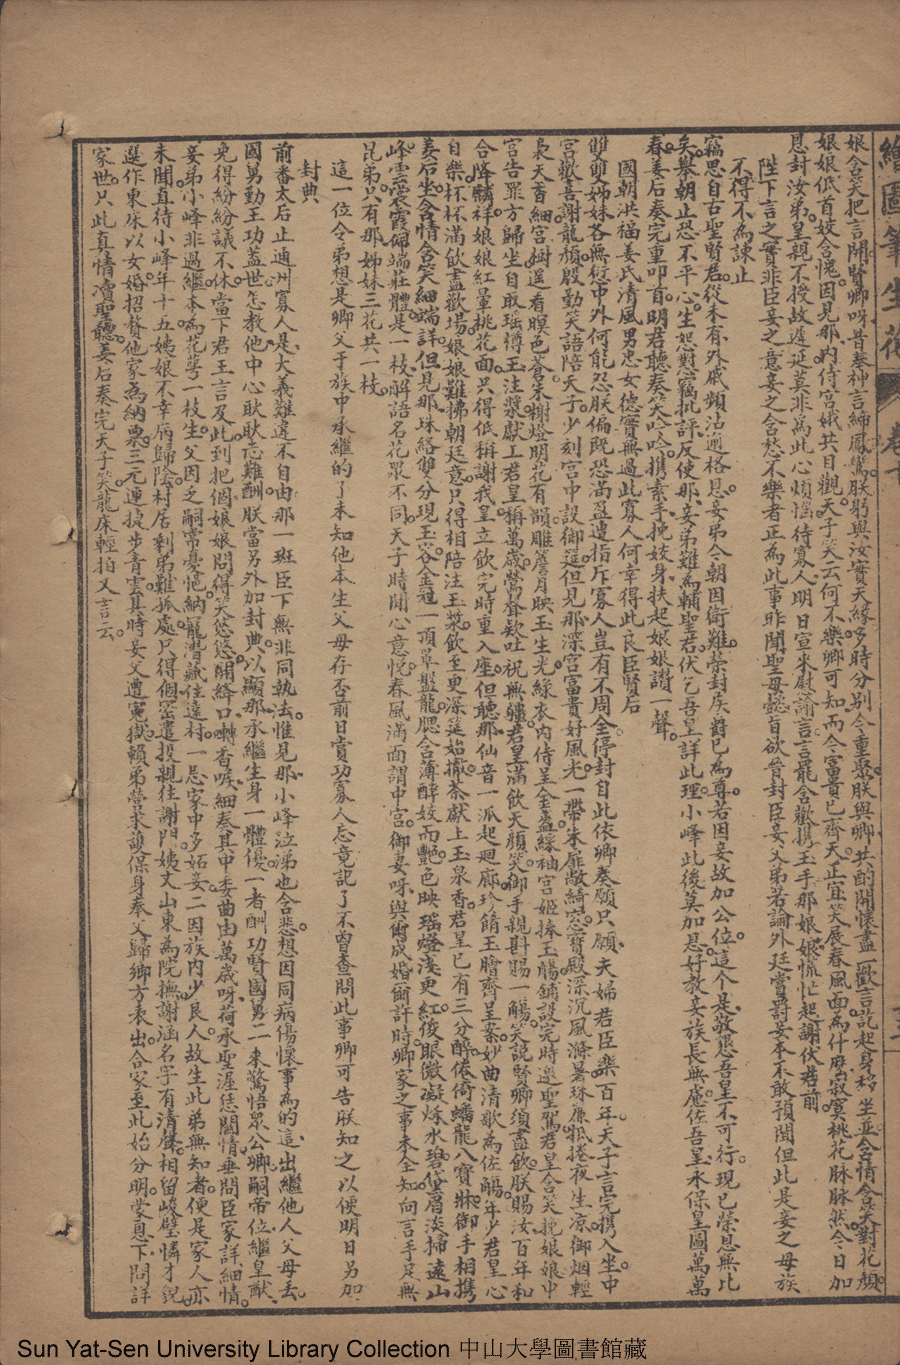 繪圖筆生花 卷十
娘含笑把言開賢卿呀昔奉神言締鳳鸞朕躬與汝實天緣多時分別今重聚朕與卿共酌開懷盡一歡言訖起身移坐並含情含笑對花顏
娘娘低首姣含愧因見那內侍宮娥共目觀天子笑云何不樂卿可知而今富貴已齊天正宜笑展春風面為什麼寂寞桃花脉脉然今日加
恩封汝弟皇親不授故遲延莫非為此心煩惱待寡人明日宣來慰諭言言罷含歡携玉手那娘娘慌忙起謝伏君前
陛下言之實非臣妾之意妾之含愁不樂者正為此事昨聞聖母懿旨欲晉封臣妾父弟若論外廷賞爵妾本不敢預聞但此是妾之母族
不得不為諫止
竊思自古聖賢君從未有外戚頻沾逾格恩妾弟今朝因衛難榮封侯爵已為尊若因妾故加公位這個是敬懇吾皇不可行現已榮恩無比
矣舉朝止恐不平心生怨懟竊批評反使那妾弟難為輔聖君伏乞吾皇詳此理小峰此後莫加恩好教妾族長無慮佐吾皇永保皇圖萬萬
春姜后奏完重叩首明君聽奏笑吟吟携素手挽姣身扶起娘娘讚一聲
國朝洪福姜氏清風男忠女德實無過此寡人何幸得此良臣賢后
雙雙姊妹各無愆中外何能忍朕偏既恐滿盈遭指斥寡人豈有不周全停封自此依卿奏願只願夫婦君臣樂百年天子言完携入坐中
宮歡喜謝龍顏殷勤笑語陪天子少刻宮中設御筵但見那深宮富貴好風光一帶朱扉敞綺窓寶殿深沉風滌暑珠廉捲夜生凉御烟輕
裊天香細宮樹遥看暝色蒼朱榭燈明花有韻雕簷月映玉生光綠衣內侍呈金盞綵袖宮姬捧玉觴鋪設完時邀聖駕君皇含笑挽娘娘中
宮告罪方歸坐自取瑤樽玉注漿獻上君皇稱萬歲鶯聲欸吐祝無疆君皇滿飲天顏笑御手親斟賜一觴笑說賢卿須盡飲朕賜汝百年和
合降麟祥娘娘紅暈桃花面只得低稱謝我皇立飲完時重入座但聽那仙音一派起廻廊珍餚玉膾齊呈案妙曲清歌為佐觴年少君皇心
自樂杯杯滿飲盡歡塲娘娘難拂朝廷意只得相陪注玉漿飲至更深筵始撤茶獻上玉泉香君皇已有三分醉倦倚蟠龍八寶牀御手相携
姜后坐含情含笑細端詳但見那珠絡雙分現玉容金冠一頂罩盤龍腮含薄醉姣而艷色映瑤燈淺更紅後眼微凝秋水碧黛眉淡掃遠山
峰雲裳霞佩端莊體是一枝解語名花眾不同天子時間心意悅春風滿面謂中宮御妻呀與爾成婚爾許時卿家之事未全知向言手足無
昆弟只有那姊妹三花共一枝
這一位令弟想是卿父于族中承繼的了未知他本生父母存否前日賞功寡人忘竟記了不曾查問此事卿可告朕知之以便明日另加
封典
前番太后止通州寡人是大義難違不自由那一班臣下無非同執法惟見那小峰泣涕也含悲想因同病傷懷事為的這出繼他人父母丟
國舅勤王功蓋世怎教他中心耿耿忘難酬朕當另外加封典以顯那承繼生身一體優一者酬功賢國舅二來驚悟眾公卿嗣帝位繼皇猷
免得紛紛議不休當下君王言及此到把個娘娘問得笑悠悠開絳口囀香喉細奏其中委曲由萬歲呀荷承聖渥恁關情垂問臣家詳細情
妾弟小峰非過繼本為花萼一枝生父因乏嗣常憂慪納寵潛藏住遠村一忌家中多妬妾二因族內少良人故生此弟無知者便是家人亦
未聞直待小峰年十五姨娘不幸病歸陰村居剩弟難孤處只得個密遣投親往謝門姨丈山東為院撫謝涵名字有清聲相留峻璧憐才銳
選作東床以女婚招贅他家為納粟三元連捷步青雲其時妾父遭寃獄賴弟營求護保身奉父歸鄉方表出合家至此始分明蒙恩下問詳
家世只此真情凟聖聽姜后奏完天子笑龍床輕拍又言云
Sun Yat-Sen University Library Collection 中山大學圖書館藏